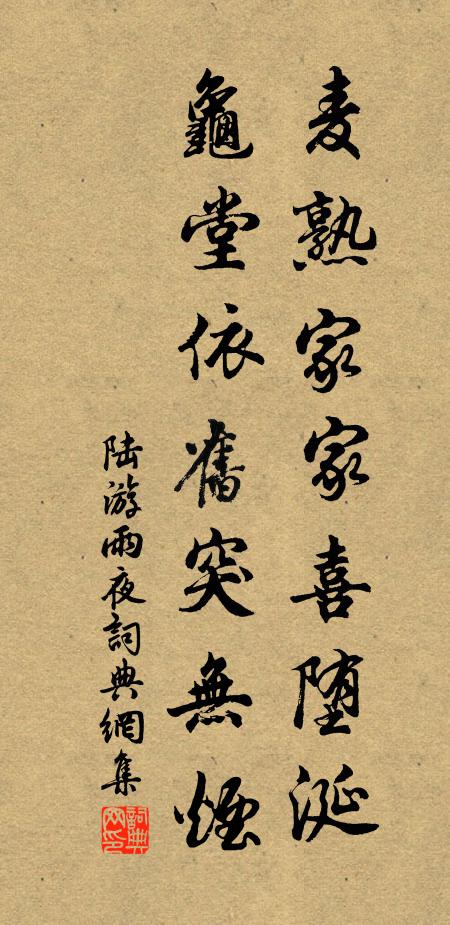 麦熟家家喜堕涎
龜堂依舊突無煙
陆游雨夜詞典網集
詞典网印